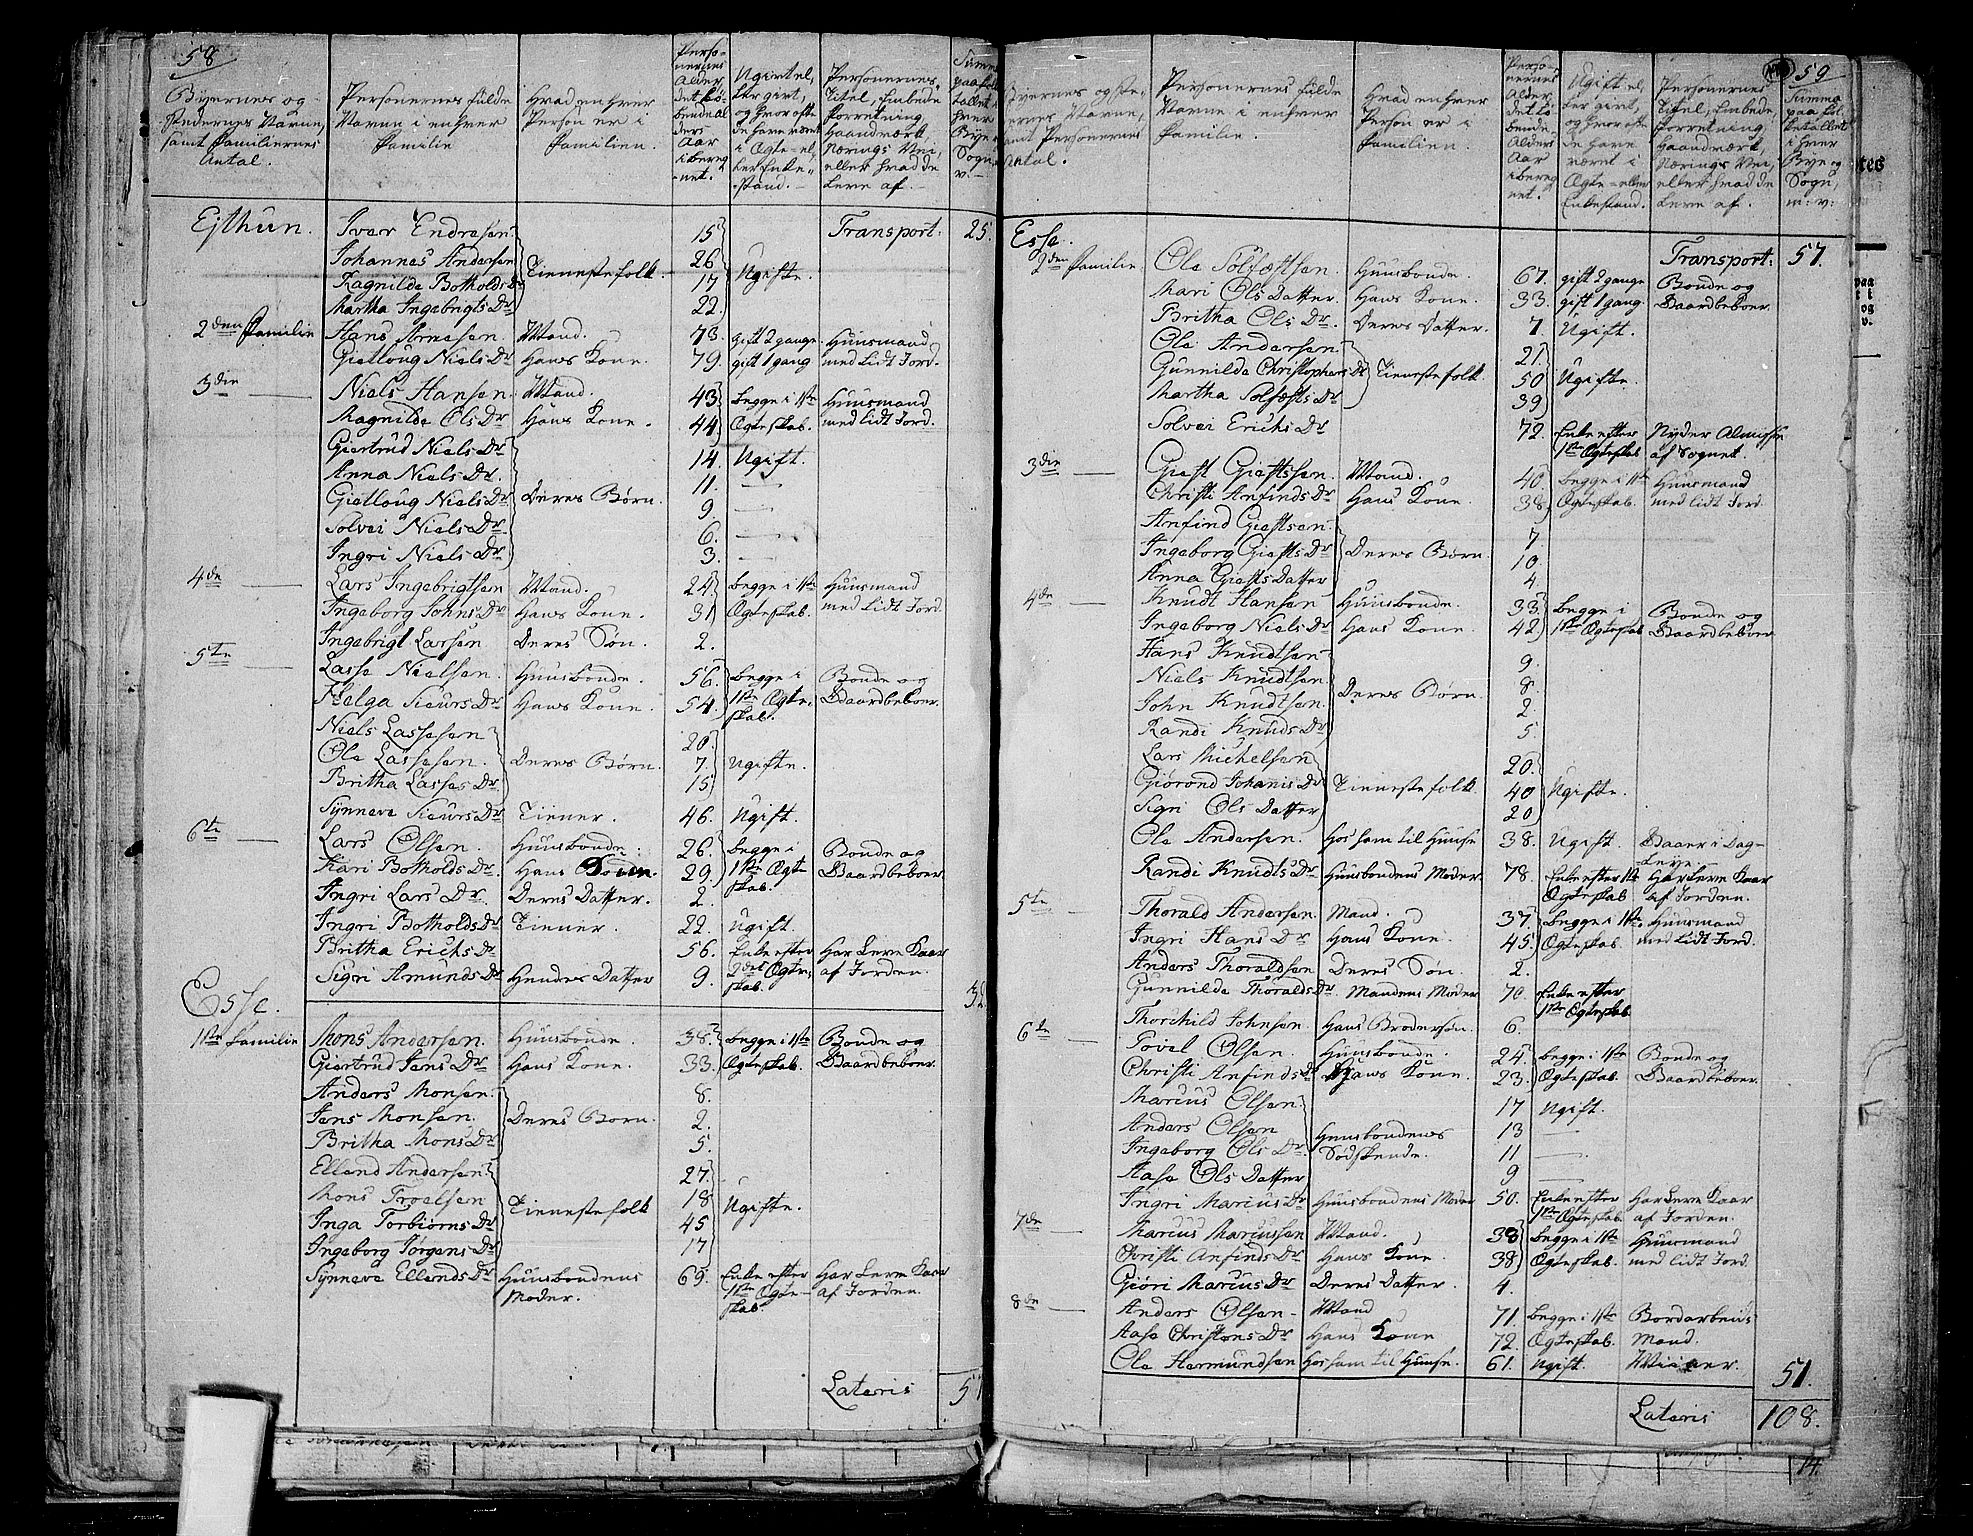 58
Byernes og Stedernes Navne, samt Familiernes Antal.
Personernes fulde Navne i enhver Familie
Hvad enhver Person er i Familien.
Personernes Alder det løbende Alders Aar iberegnet.
Ugivt eller givt, og hvor ofte de have været i Ægte- eller Enkestand.
Personernes Titel, Embede Forretning, Haandværk, Nærings Vei, eller hvad de Leve af.
Ejthun. Iver Endresen 15 Transport: 25.
Johannes Andersen 26
Ragnilde Botholds Dr Tienestefolk. 17 Ugifte.
Martha Ingebrigts Dr 22.
2den Familie Hans Arnesen Mand. 73. gift 2 gange Huusmand
Gietloug Niels Dr Hans Kone. 79. gift 1 gang med Lidt Jord.
3die Niels Hansen Mand. 43 begge i 1ste Huusmand
Magnilde Ols Dr Hans Kone. 44. Ægteskab. med lidt Jord.
Giertrud Niels Dr 14. Ugift.
Anna Niels Dr. 11. —
Gietloug Niels Dr Deres Børn. 9. —
Solvei Niels Dr 6. —
Ingri Niels Dr 3. —
4de Lars Ingebrigtsen Mand. 24 begge i 1ste Huusmand
Ingeborg Johns Dr Hans Kone. 31 Ægteskab. med Lidt Jord.
Ingebrigt Larsen Deres Søn. 2.
5te Lasse Nielsen. Huusbonde. 56. begge i Bonde og
Helga Siurs Dr Hans Kone. 54. 1ste Ægteskab. Gaardbeboer.
Niels Lassesen 20.
Ole Lassesen. Deres Børn. 7. Ugifte.
Britha Lasses Dr 15
Synneve Siurs Dr Tiener. 46. Ugift.
6te Lars Olsen. Huusbonde. 26. begge i Bonde og
Kari Botholds Dr Hans 29. 1ste Ægteskab. Gaardbeboer.
Ingri Lars Dr. Deres Datter. 2.
Ingri Botholds Dr Tiener. 22. Ugift.
Britha Erichs Dr 56. Enke efter Har Leve Kaar
Sigri Amunds Dr Hendes Datter 9. 2det Ægteskab. af Jorden. 32
Esse.
1ste Familie Mons Andersen. Huusbonde. 38. begge i 1ste Bonde og
Giertrud Jens Dr Hans Kone. 33. Ægteskab. Gaardbeboer.
Anders Monsen. 8.
Jens Monsen. Deres Born. 2.
Britha Mons Dr 5.
Elland Andersen 27.
Mons Troelsen Tienestefolk 18 Ugifte.
Inga Torbiørns Dr 45
Ingeborg Jørgens Dr 17
Synneve Ellends Dr Huusbondens Moder. 69. Enke efter 1ste Ægteskab. Har Leve Kaar af Jorden.
Lateris 57
59
Byernes og Stedernes Navne, samt Personernes Antal.
Personernes fulde Navne i enhver Familie.
Hvad enhver Person er i Familien.
Personernes Alder det løbende Alders Aar iberegnet.
Ugift eller givt, og hvor ofte de have været i Ægte- eller Enkestand.
Personernes Titel, Embede, Forretning, Haandværk, Nærings Vei eller hvad de Leve af.
Summa paa Folketallet i hver Bye og Sogn, m: v:
Esse. Transport: 57.
2den Familie Ole Solfæstsen. Huusbonde. 67. gift 2 gange Bonde og
Mari Ols Datter. Hans Kone. 33. gift 1 gang. Gaardbeboer.
Britha Ols Dr. Deres Datter. 7. Ugift.
Ole Andersen. 21
Gunnilde Christophers Dr Tienestefolk. 50 Ugifte.
Martha Solfæsts Dr 39
Solvei Erichs Dr 72. Enke efter 1ste Ægteskab Nyder Almisse af Sognet.
3die Gieft Gieftssen. Mand. 40. begge i 1ste Huusmand
Christi Anfinds Dr Hans Kone. 38. Ægteskab. med lidt Jord.
Anfind Gieftsen. 7.
Ingeborg Giefts Dr Deres Børn. 10.
Anna Giefts Datter 4.
4de Knudt Hansen Huusbonde. 33. begge i Bonde og
Ingeborg Niels Dr Hans Kone. 42. 1ste Ægteskab Gaardbeboer.
Hans Knudtsen 9.
Niels Knudtsen. 8.
John Knudtsen. Deres Born. 2
Randi Knuds Dr 5
Lars Michelsen 20.
Giørond Johanis Dr Tienestefolk 40 Ugifte.
Sigri Ols Datter 20
Ole Andersen. Hos ham til Huuse 38. Ugift. Gaaer i Dag-Leye.
Randi Knudts Dr Huusbondens Moder 78. Enke efter 1ste Ægteskab. Har Leve Kaar af Jorden.
5te Thorald Andersen Mand. 37. begge i 1ste Huusmand
Ingri Hans Dr Hans Kone. 45. Ægteskab. med Lidt Jord.
Anders Thoraldsen Deres Søn. 2.
Gunnilda Thoralds Dr Mandens Moder 70. Enke efter 1ste Ægteskab.
Thorchild Johnsen. Hans Brodersøn. 6.
6te Povel Olsen. Huusbonde. 24. begge i 1ste Bonde og
Christi Anfinds Dr Hans Kone. 23. Ægteskab. Gaardbeboer.
Marcus Olsen. 17 Ugift.
Anders Olsen Huusbondenes 13 —
Ingeborg Ols Dr Sødskende. 11 —
Aase Ols Datter 9
Ingri Marcus Dr Huusbondens Moder 50. Enke efter 1ste Ægteskab Har Leve Kaar af Jorden.
7de Marcus Marcussen Mand. 38 begge i 1ste Huusmand
Christi Anfinds Dr Hans Kone. 38 Ægteskab. med lidt Jord.
Giøri Marcus Dr Deres Datter. 4.
8de Anders Olsen Mand 71. begge i 1ste Bordarbeids
Aase Christens Dr Hans Kone 72. Ægteskab. Mand.
Ole Hermundsen Hos ham til Huuse. 61. Ugift. 51.
Lateris 108.
14.